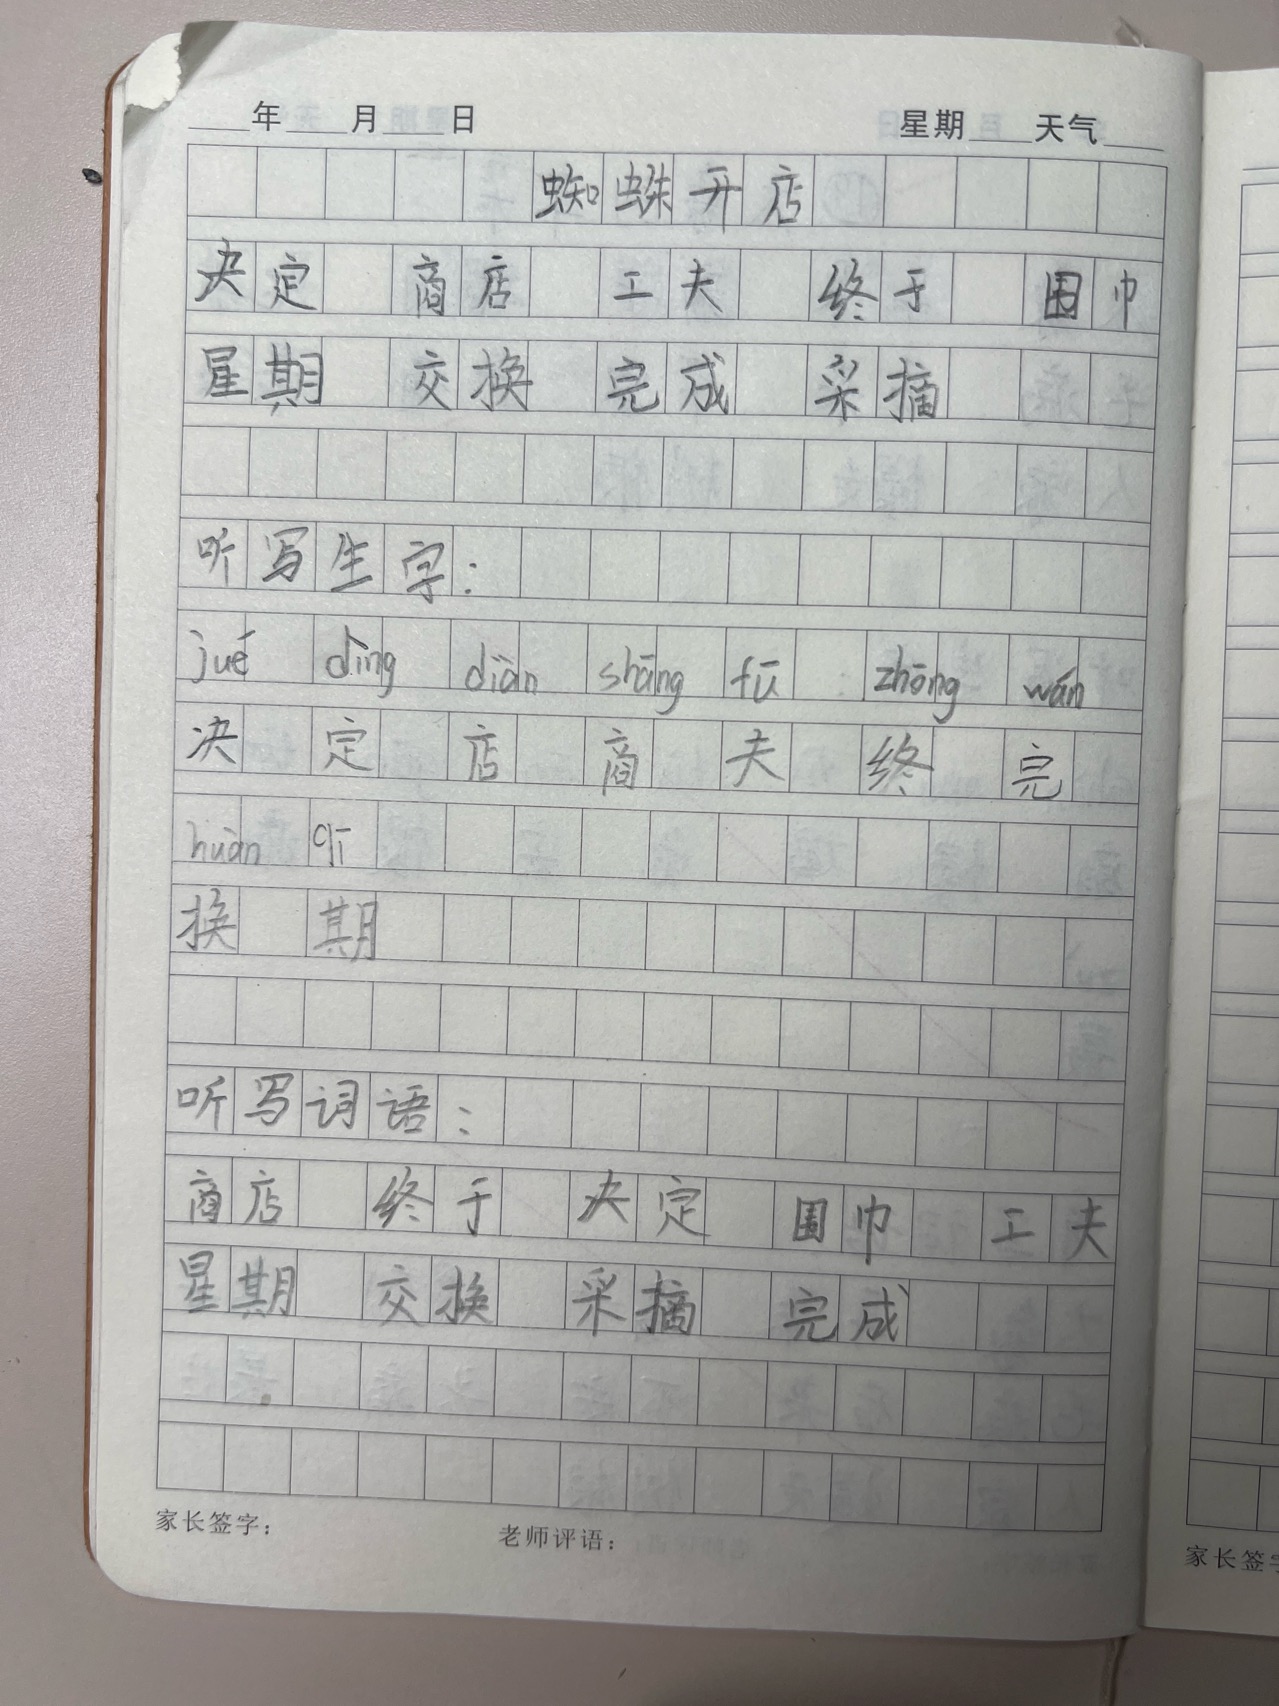 年 月 日 星期 天气
蜘蛛开店
决定 商店 工夫 终于 围巾
星期 交换 完成 采摘
听写生字:
jué dìng diàn shāng fū zhōng wán
决 定 店 商 夫 终 完
huàn qī
换 期
听写词语:
商店 终于 决定 围巾 工夫
星期 交换 采摘 完成
家长签字: 老师评语:
家长签字